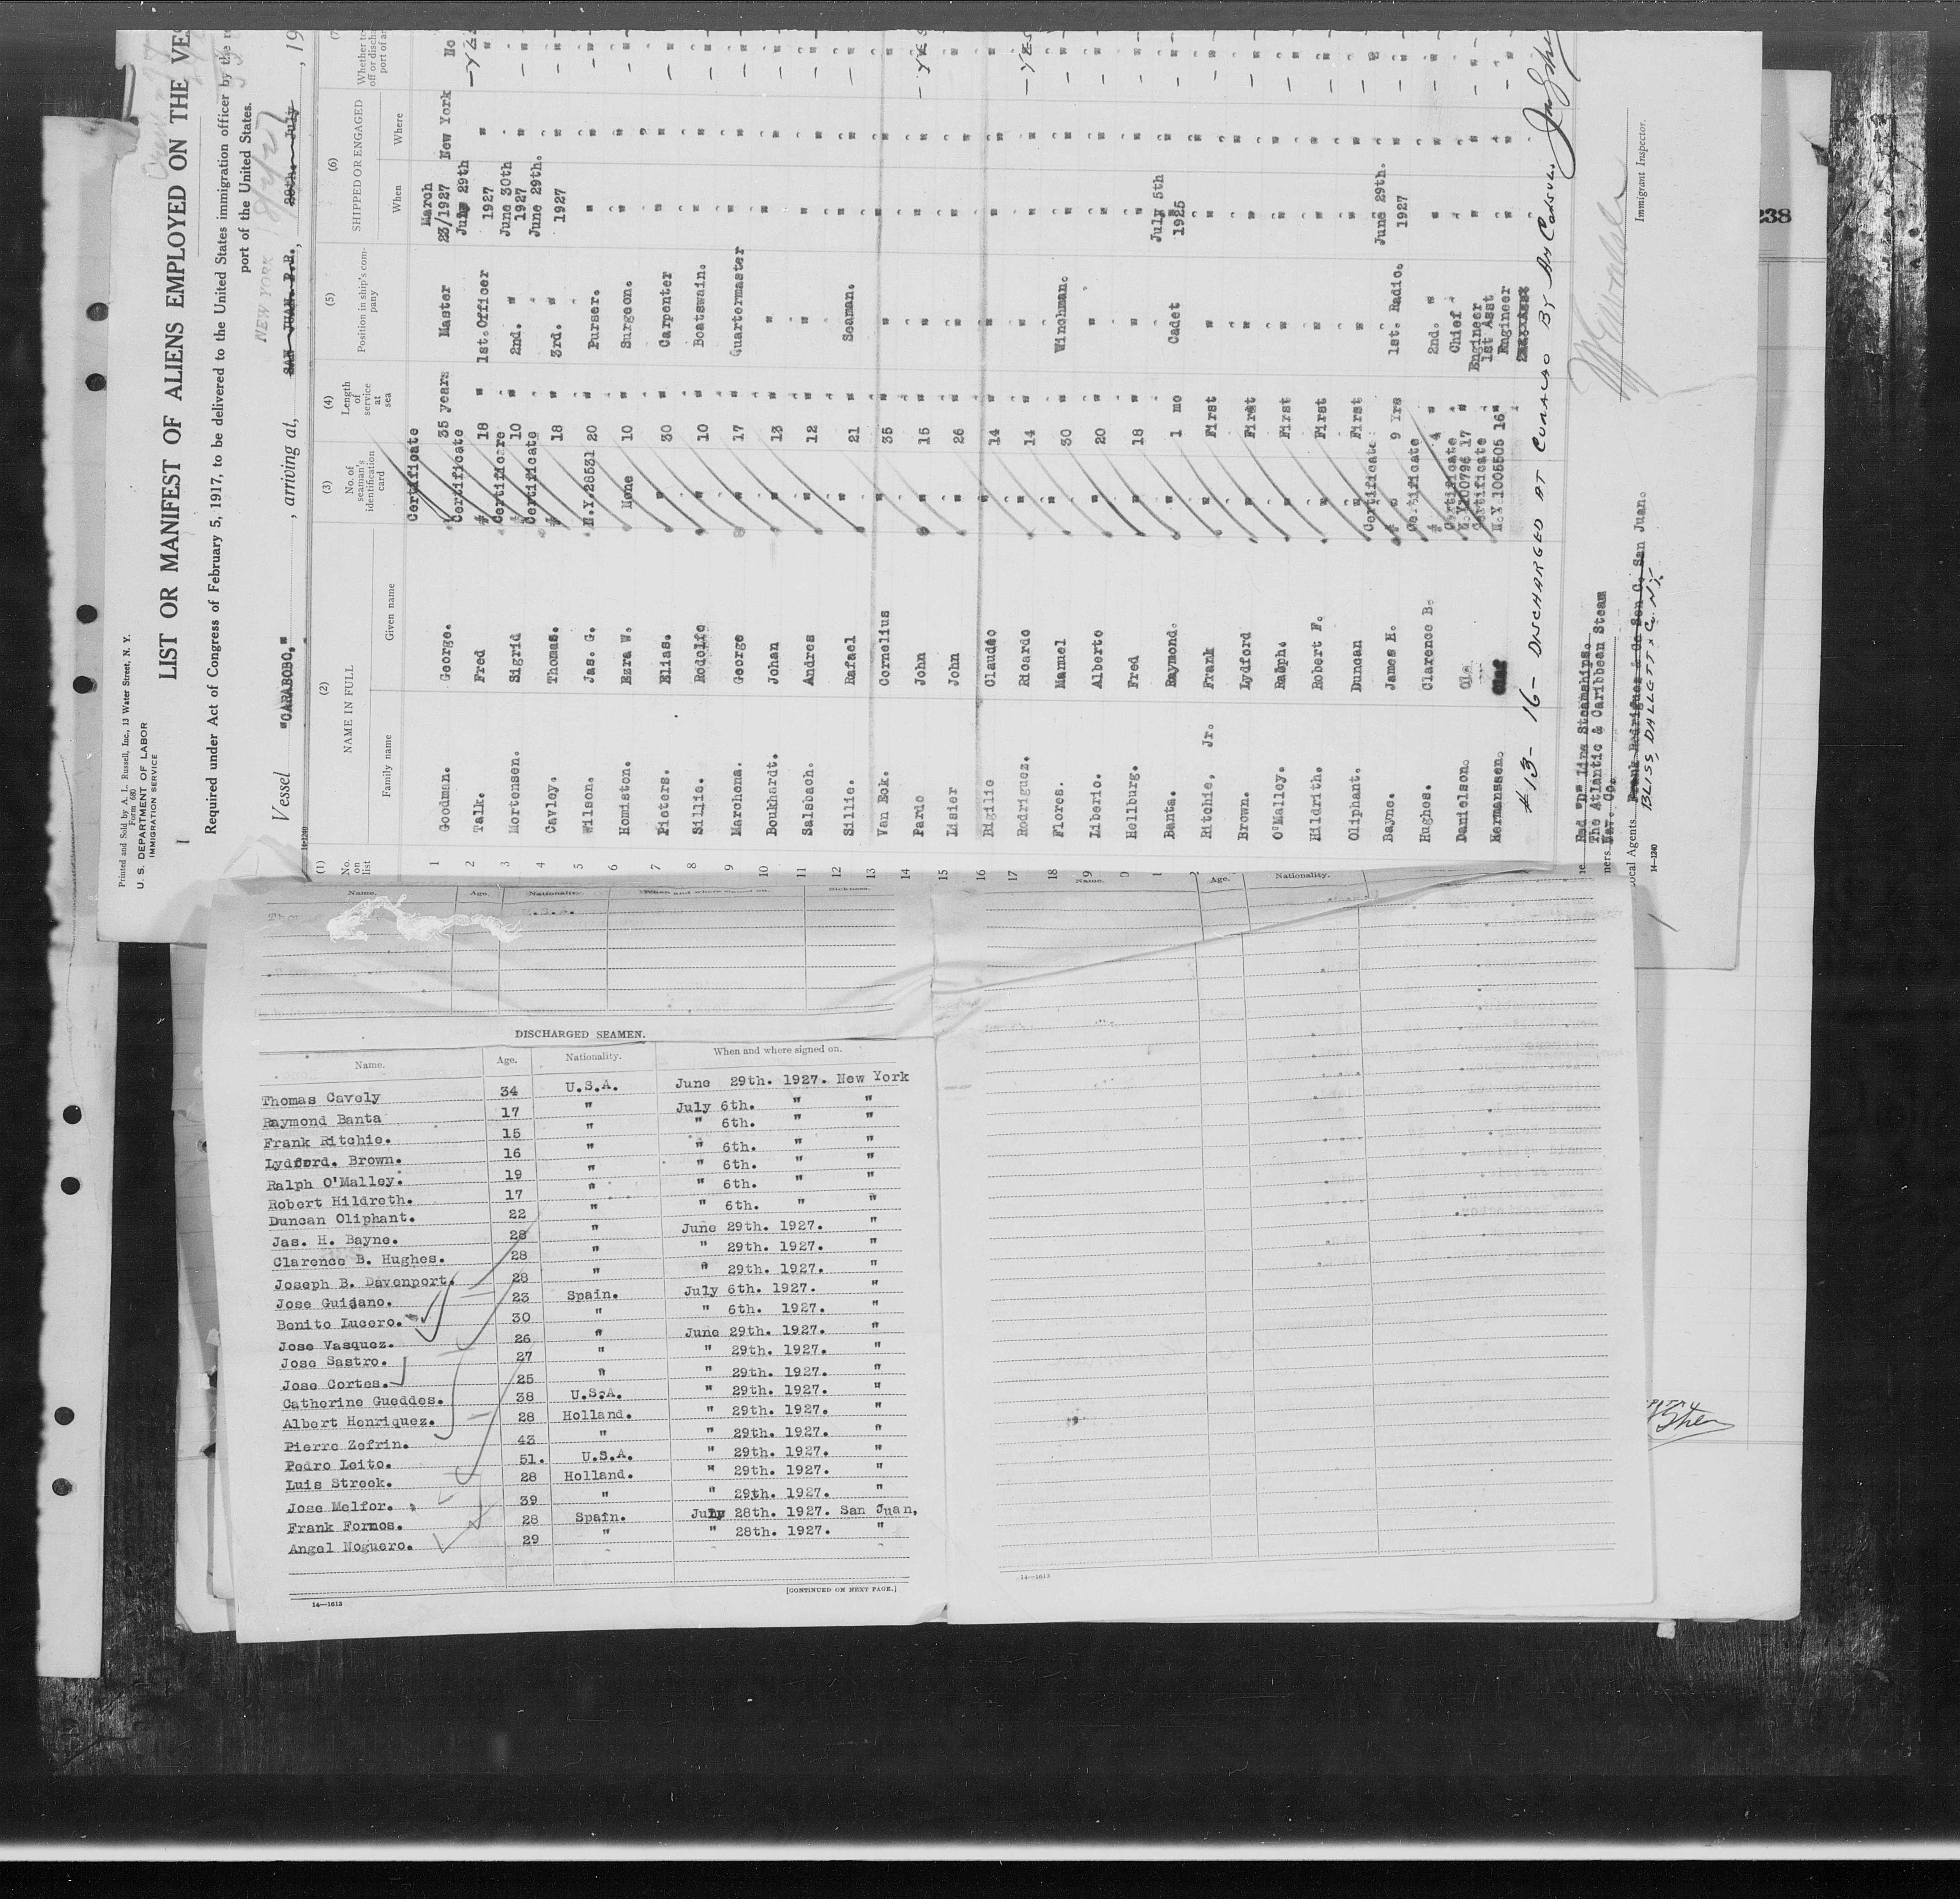 Printed and Sold by A. L. Russell, Inc., 13 Water Street, N. Y.
Form 680
U. S. DEPARTMENT OF LABOR
IMMIGRATION SERVICE
LIST OR MANIFEST OF ALIENS EMPLOYED ON THE VES
Required under Act of Congress of February 5, 1917, to be delivered to the United States immigration officer by the r
port of the United States.
NEW YORK 8/4/27
Vessel "CARABOBO," , arriving at, SAN JUAN. P.R. , 28th. July , 19
14-1240
(1) (2) (3) (4) (5) (6) (7)
No. on list NAME IN FULL No. of seaman's identification card Length of service at sea Position in ship's company SHIPPED OR ENGAGED Whether to
off or discha
port of ar
Family name Given name When Where
1 Goodman. George. Certificate 35 years Master March 23/1927 New York No
2 Talk. Fred Certificate # 18 " 1st.Officer June 29th 1927 " "
3 Mortensen. Sigrid Certificare # 10 " 2nd. " June 30th 1927 " "
4 Cavley. Thomas. Certificate # 18 " 3rd. " June 29th. 1927 " "
5 Wilson. Jas. G. N.Y.28531 20 " Purser. " " "
6 Homiston. Ezra W. None 10 " Surgeon. " " "
7 Pieters. Elias. " 30 " Carpenter " " "
8 Sillie. Rodolfo " 10 " Boatswain. " " "
9 Marchena. George " 17 " Quartermaster " " "
10 Boukhardt. Johan " 13 " " " " "
11 Salsbach. Andres " 12 " " " " "
12 Sillie. Rafael " 21 " Seaman. " " "
13 Van Eck. Cornelius " 35 " " " " "
14 Pardo John " 15 " " " " YES
15 Lisier John " 26 " " " " "
16 Rigilio Claudio " 14 " " " " "
17 Rodriguez. Ricardo " 14 " " " " YES
18 Flores. Manuel " 30 " Winchman. " " "
19 Liberic. Alberto " 20 " " " " "
Hellburg. Fred " 18 " " " " "
Banta. Raymond. " 1 mo Cadet July 5th 1925 " "
Ritchie, Jr. Frank " First " " " "
Brown. Lydford " First " " " "
O'Malley. Ralph. " First " " " "
Hildrith. Robert F. " First " " " "
Oliphant. Duncan " First " " " "
Bayne. James H. Certificate # 9 Yrs 1st. Radio. June 29th. 1927 " "
Hughes. Clarence B. Certificate # 4 " 2nd. " " " "
Danielson. Ola Certificate N.Y100796 17 " Chief Engineer " " "
Hermanssen. Olaf Certificate N.Y.1005505 16" 1st Asst Engineer " " "
#13- 16- DISCHARGED AT CURACAO BY AM CONSUL.
Red "D" Line Steamships.
The Atlantic & Caribbean Steam
Nav. Co.
ners.
Local Agents. Frank Rodriguez & Co Son C. San Juan.
BLISS, DALLETT & Co. N.Y.
Immigrant Inspector.
14-1240
238
Name. Age. Nationality. When and where signed on.
Name. Age. Nationality.
DISCHARGED SEAMEN.
Name. Age. Nationality. When and where signed on.
Thomas Cavely 34 U.S.A. June 29th. 1927. New York
Raymond Banta 17 " July 6th. " "
Frank Ritchie. 15 " " 6th. " "
Lydford. Brown. 16 " " 6th. " "
Ralph O'Malley. 19 " " 6th. " "
Robert Hildreth. 17 " " 6th. " "
Duncan Oliphant. 22 " " 6th. " "
Jas. H. Bayne. 28 " June 29th. 1927. "
Clarence B. Hughes. 28 " " 29th. 1927. "
Joseph B. Davenport. 28 " " 29th. 1927. "
Jose Guidano. 23 Spain. July 6th. 1927. "
Benito Lucero. 30 " " 6th. 1927. "
Jose Vasquez. 26 " June 29th. 1927. "
Jose Sastro. 27 " " 29th. 1927. "
Jose Cortes. 25 " " 29th. 1927. "
Catherine Gueddes. 38 U.S.A. " 29th. 1927. "
Albert Henriquez. 28 Holland. " 29th. 1927. "
Pierre Zefrin. 43 " " 29th. 1927. "
Pedro Leito. 51. U.S.A. " 29th. 1927. "
Luis Streek. 28 Holland. " 29th. 1927. "
Jose Melfor. 39 " " 29th. 1927. "
Frank Formos. 28 Spain. July 28th. 1927. San Juan,
Angel Noguero. 29 " " 28th. 1927. "
[CONTINUED ON NEXT PAGE.]
14—1613
14—1613